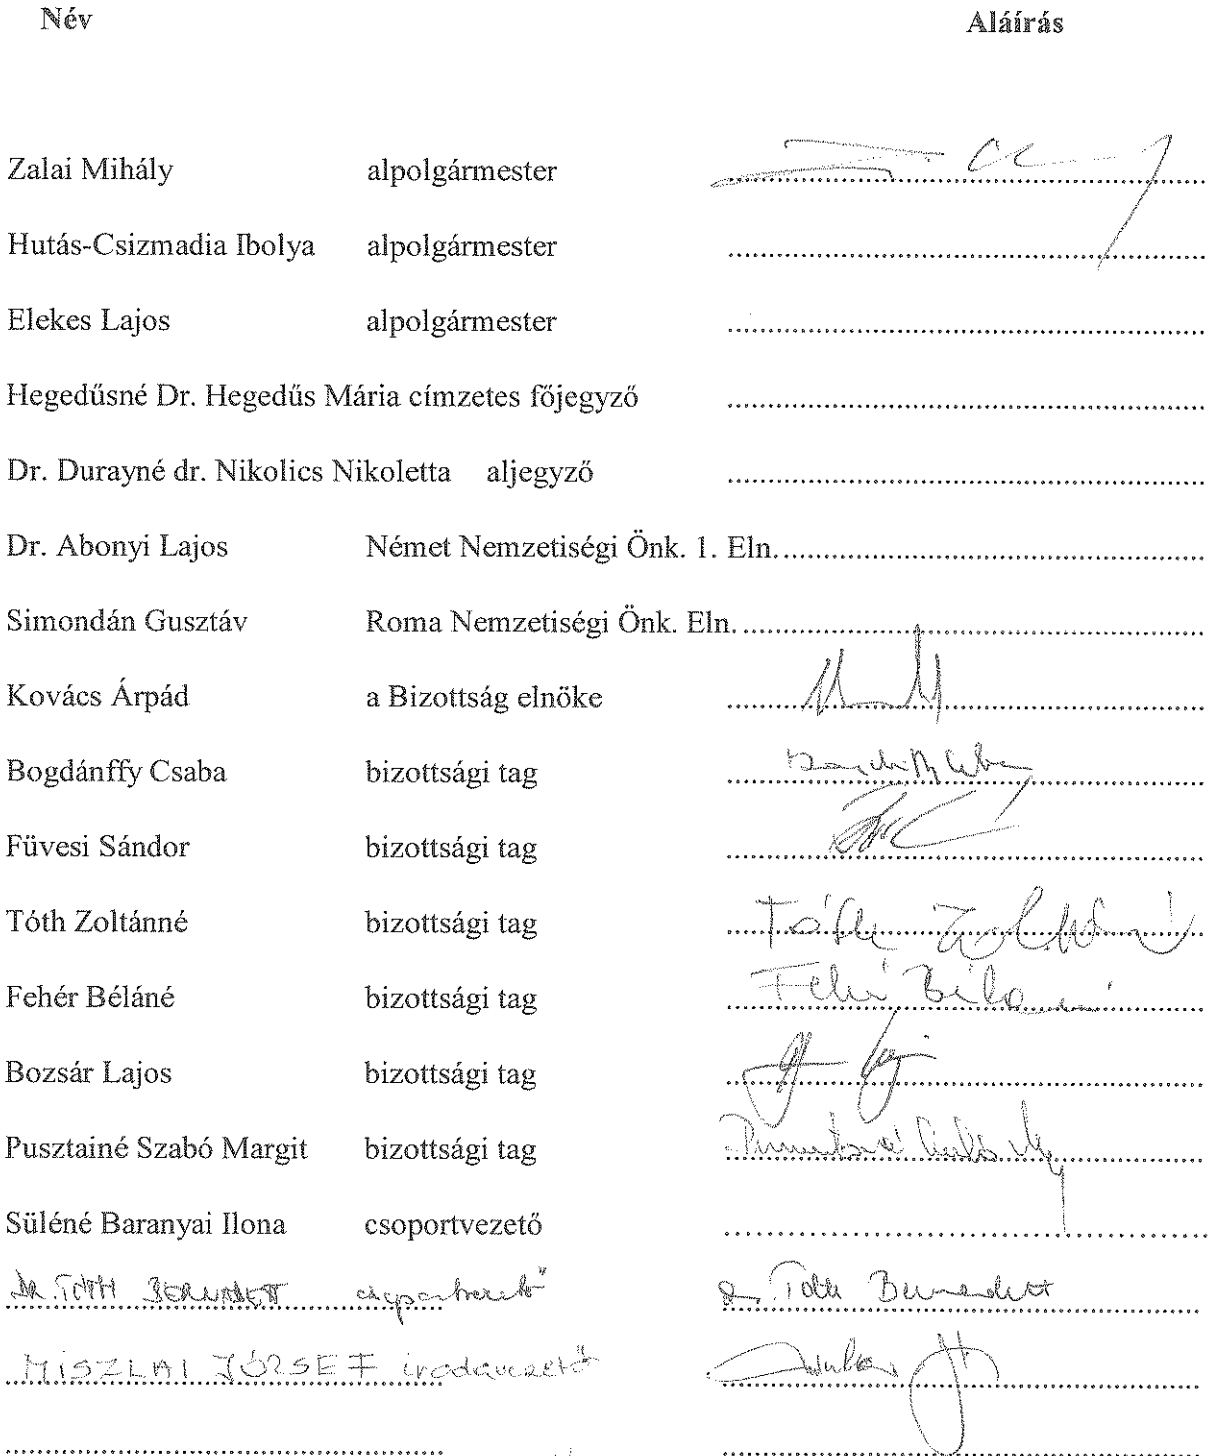 Név Aláírás
Zalai Mihály alpolgármester
Hutás-Csizmadia Ibolya alpolgármester
Elekes Lajos alpolgármester
Hegedűsné Dr. Hegedűs Mária címzetes főjegyző
Dr. Durayné dr. Nikolics Nikoletta aljegyző
Dr. Abonyi Lajos Német Nemzetiségi Önk. 1. Eln.
Simondán Gusztáv Roma Nemzetiségi Önk. Eln.
Kovács Árpád a Bizottság elnöke
Bogdánffy Csaba bizottsági tag
Füvesi Sándor bizottsági tag
Tóth Zoltánné bizottsági tag Tóth Zoltánné
Fehér Béláné bizottsági tag Fehér Béláné
Bozsár Lajos bizottsági tag
Pusztainé Szabó Margit bizottsági tag
Süléné Baranyai Ilona csoportvezető
DR. TÓTH BERNADETT csoportvezető dr. Tóth Bernadett
MISZLAI JÓZSEF irodavezető